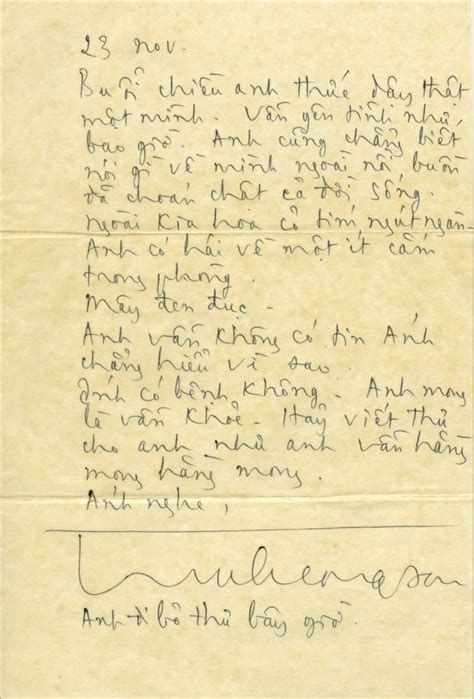 23 nov.
Buổi chiều anh thức dậy thật
một mình. Vẫn yên tĩnh như
bao giờ. Anh cũng chẳng biết
nói gì về mình ngoài nỗi buồn
đã choán chật cả đời sống.
ngoài kia hoa cỏ tím ngút ngàn.
Anh có hái về một ít cắm
trong phòng.
Mây đen đục.
Anh vẫn không có tin Ánh
chẳng hiểu vì sao.
Ánh có bệnh không. Anh mong
là vẫn khỏe. Hãy viết thư
cho anh như anh vẫn hằng
mong hằng mong.
Ánh nghe,
Trinhcongson
Anh đi bỏ thư bây giờ.